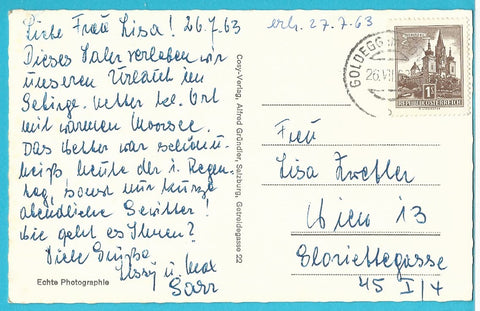 Liebe Frau Lisa! 26.7.63
Dieses Jahr verleben wir
unseren Urlaub im
Gebirge. Netter kl. Ort
mit warmen Moorsee.
Das Wetter war schön u.
heiß, heute der 1. Regen-
tag, sonst nur kurze
abendliche Gewitter!
Wie geht es Ihnen?
Viele Grüße
Sissy u. Max
Echte Photographie
Cosy-Verlag, Alfred Gründler, Salzburg, Getreidegasse 22
erh. 27.7.63
GOLDEGG
26.VII
1S
REPUBLIK ÖSTERREICH
Frau
Lisa
Wien 13
Gloriettegasse
45 I/4